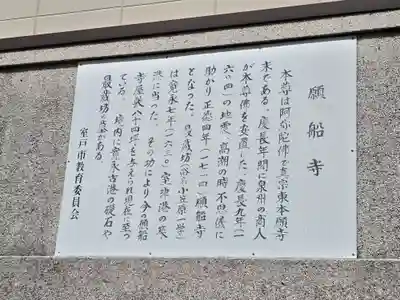 願船寺
本尊は阿弥陀佛で真宗東本願寺
末である。慶長年間に泉州の商人
が本尊佛を安置した。慶長九年(一
六〇四)の地震、高潮の時不思儀に
助かり 正徳四年(一七一四)願船寺
となった。最蔵坊(俗名小笠原一學)
は寛永七年(一六三〇)室津港の築
港に当った。その功により今の願船
寺屋敷八十四坪を与えられ現在に至っ
ている。境内に寛永古港の礎石や
最蔵坊の墓がある。
室戸市教育委員会